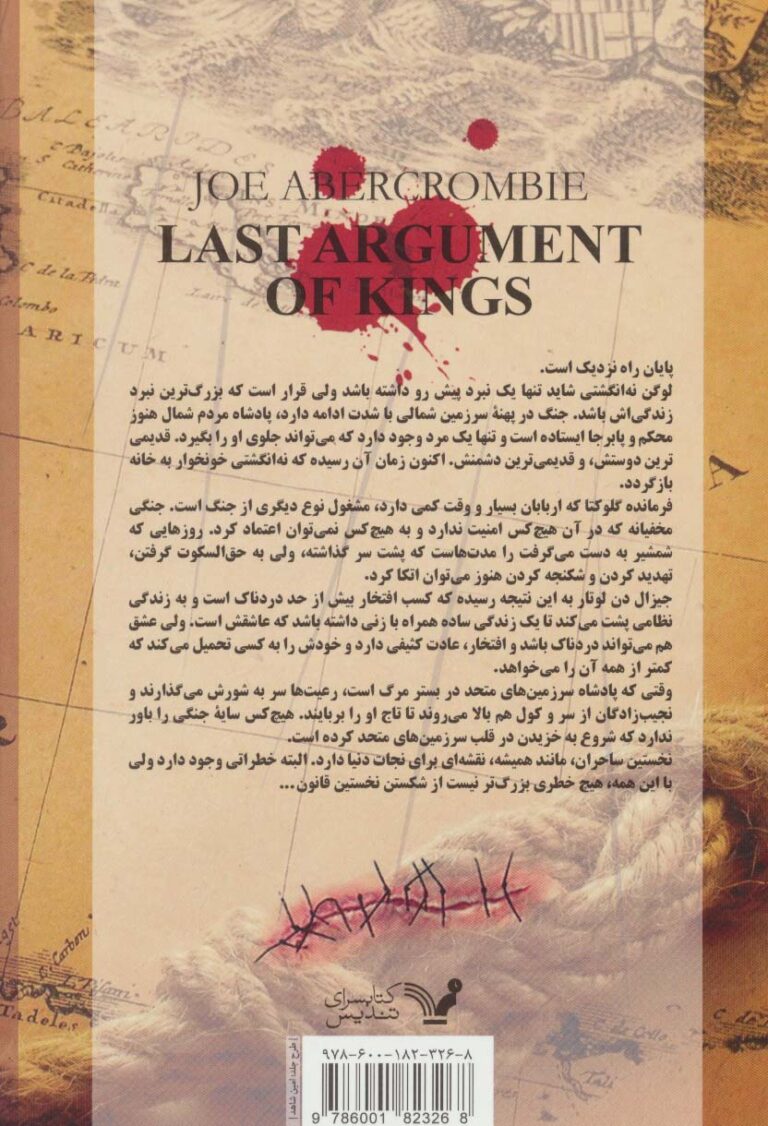 BALEARIDES
Citadella
C de la Pedra
Colombo
ARICUM
JOE ABERCROMBIE
LAST ARGUMENT
OF KINGS
پایان راه نزدیک است.
لوگن نه‌انگشتی شاید تنها یک نبرد پیش رو داشته باشد ولی قرار است که بزرگ‌ترین نبرد
زندگی‌اش باشد. جنگ در پهنهٔ سرزمین شمالی با شدت ادامه دارد، پادشاه مردم شمال هنوز
محکم و پابرجا ایستاده است و تنها یک مرد وجود دارد که می‌تواند جلوی او را بگیرد. قدیمی
ترین دوستش، و قدیمی‌ترین دشمنش. اکنون زمان آن رسیده که نه‌انگشتی خونخوار به خانه
بازگردد.
فرمانده گلوکتا که اربابان بسیار و وقت کمی دارد، مشغول نوع دیگری از جنگ است. جنگی
مخفیانه که در آن هیچ‌کس امنیت ندارد و به هیچ‌کس نمی‌توان اعتماد کرد. روزهایی که
شمشیر به دست می‌گرفت را مدت‌هاست که پشت سر گذاشته، ولی به حق‌السکوت گرفتن،
تهدید کردن و شکنجه کردن هنوز می‌توان اتکا کرد.
جیزال دن لوتار به این نتیجه رسیده که کسب افتخار بیش از حد دردناک است و به زندگی
نظامی پشت می‌کند تا یک زندگی ساده همراه با زنی داشته باشد که عاشقش است. ولی عشق
هم می‌تواند دردناک باشد و افتخار، عادت کثیفی دارد و خودش را به کسی تحمیل می‌کند که
کمتر از همه آن را می‌خواهد.
وقتی که پادشاه سرزمین‌های متحد در بستر مرگ است، رعیت‌ها سر به شورش می‌گذارند و
نجیب‌زادگان از سر و کول هم بالا می‌روند تا تاج او را بربایند. هیچ‌کس سایهٔ جنگی را باور
ندارد که شروع به خزیدن در قلب سرزمین‌های متحد کرده است.
نخستین ساحران، مانند همیشه، نقشه‌ای برای نجات دنیا دارد. البته خطراتی وجود دارد ولی
با این همه، هیچ خطری بزرگ‌تر نیست از شکستن نخستین قانون...
C. Carbon
Tadeles
Tali
کتابسرای
تندیس
طرح جلد: امین شاهد
۹۷۸-۶۰۰-۱۸۲-۳۲۶-۸
9 786001 823268